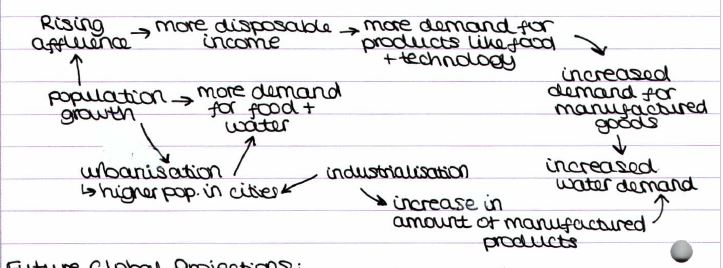 Rising affluence → more disposable income → more demand for products like food + technology
increased demand for manufactured goods
population growth → more demand for food + water
urbanisation
↳ higher pop. in cities
industrialisation
increased water demand
increase in amount of manufactured products
Future Global Projections: